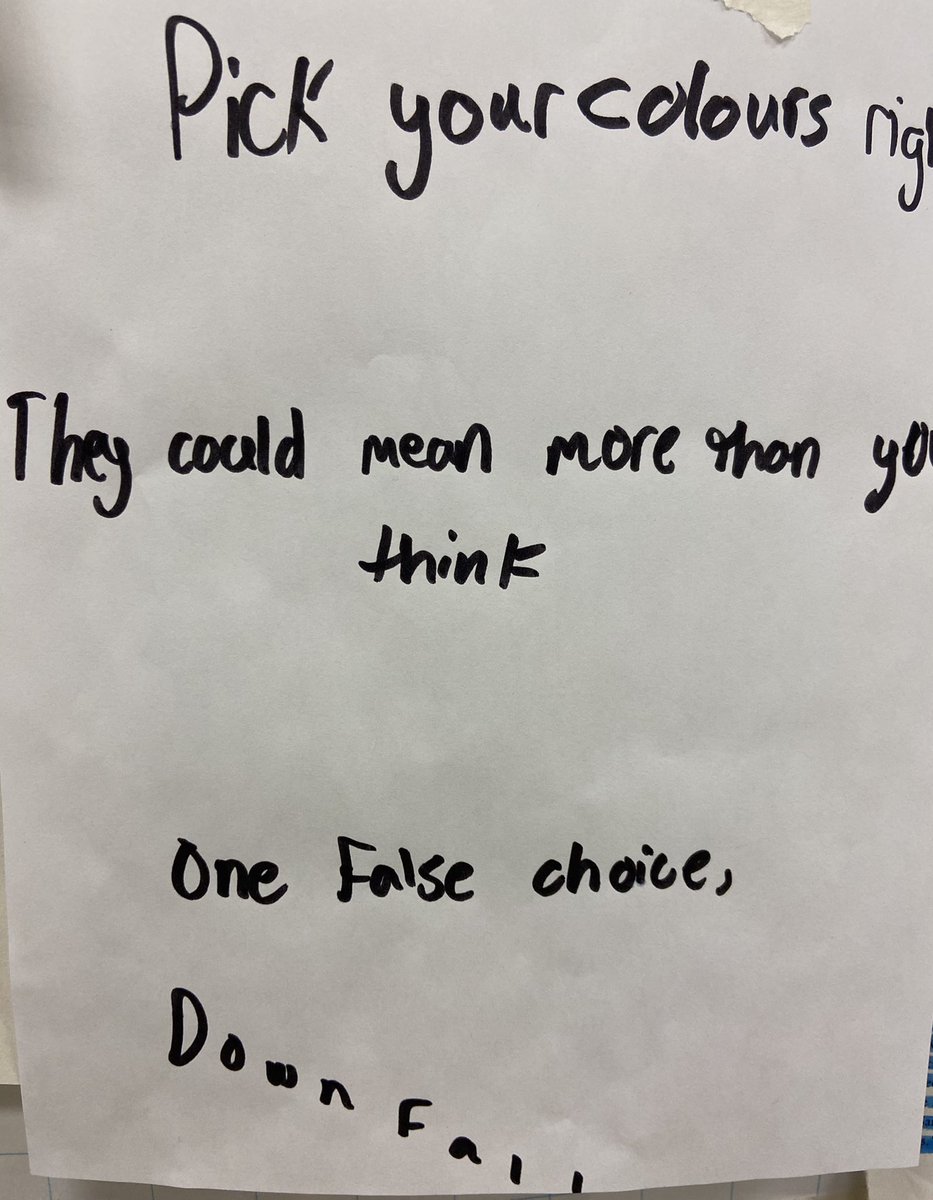 Pick your colours righ
They could mean more than you
think
One False choice,
Down Fall